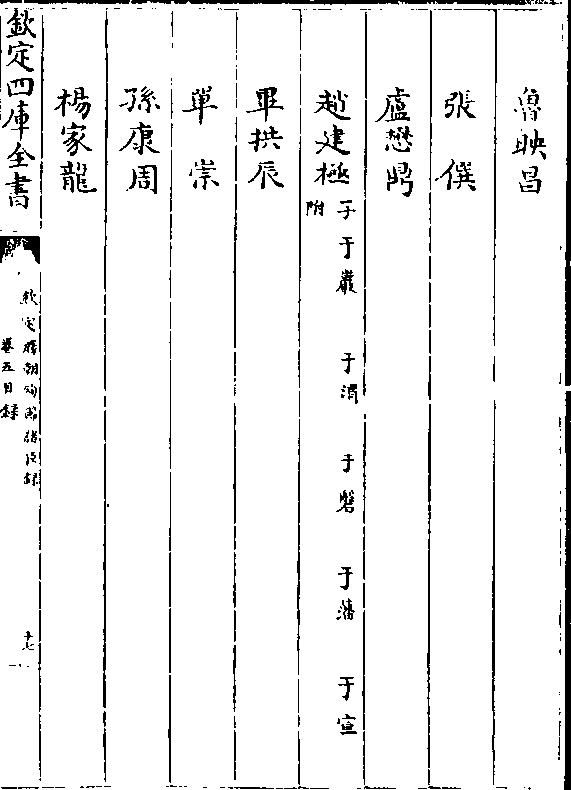 魯映昌
張僎
盧懋鼎
趙建極 子于巖 于渭 于磐 于藩 于宣 附
畢拱辰
單崇
孫康周
楊家龍
欽定四庫全書
欽定勝朝殉節諸臣録
卷五目録
十七